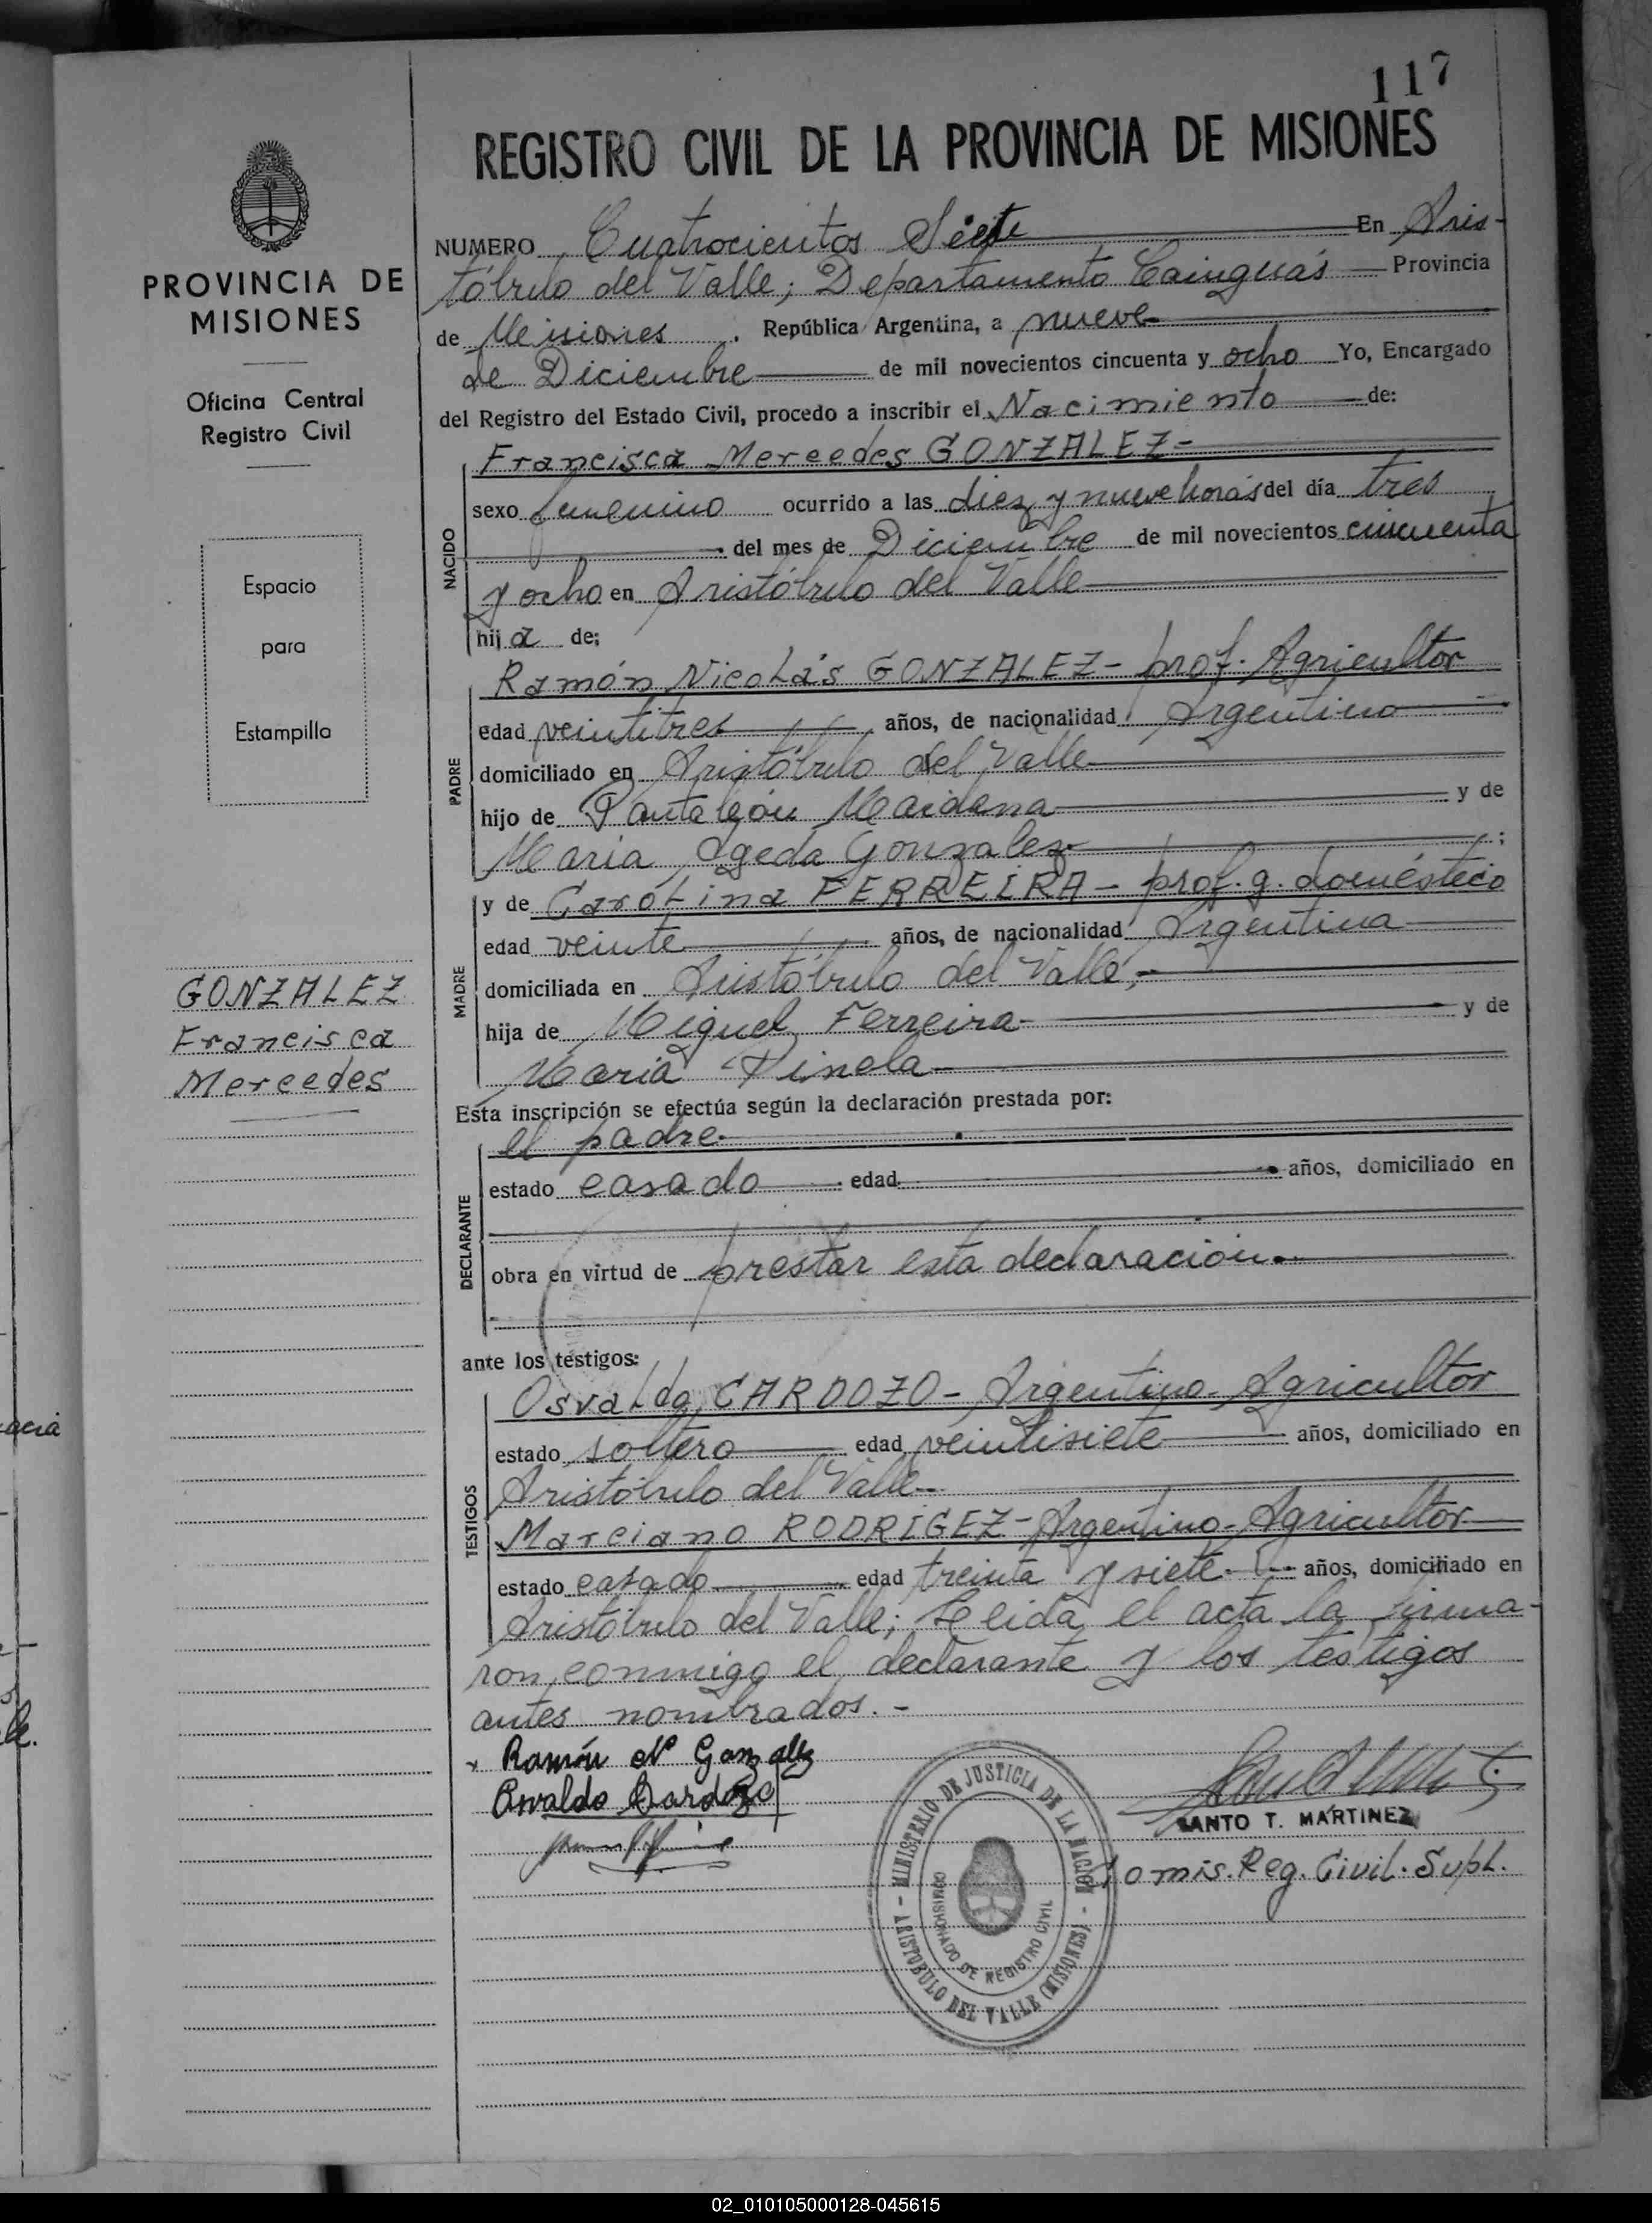 117
REGISTRO CIVIL DE LA PROVINCIA DE MISIONES
PROVINCIA DE
MISIONES
Oficina Central
Registro Civil
Espacio
para
Estampilla
GONZALEZ
Francisca
Mercedes
NUMERO Cuatrocientos Siete En Aris-
tóbulo del Valle; Departamento Cainguás Provincia
de Misiones. República Argentina, a nueve
de Diciembre de mil novecientos cincuenta y ocho Yo, Encargado
del Registro del Estado Civil, procedo a inscribir el Nacimiento de:
NACIDO
Francisca Mercedes GONZALEZ-
sexo femenino ocurrido a las diez y nueve horas del día tres
del mes de Diciembre de mil novecientos cincuenta
y ocho en Aristóbulo del Valle
hija de;
PADRE
Ramón Nicolás GONZALEZ- prof. Agricultor
edad veintitres años, de nacionalidad Argentino
domiciliado en Aristóbulo del Valle
hijo de Pantaleón Maidana y de
Maria Ageda Gonzalez ;
MADRE
y de Carolina FERREIRA- prof. q. doméstico
edad veinte años, de nacionalidad Argentina
domiciliada en Aristóbulo del Valle,-
hija de Miguel Ferreira y de
Maria Pinela
Esta inscripción se efectúa según la declaración prestada por:
DECLARANTE
el padre.
estado casado edad años, domiciliado en
obra en virtud de prestar esta declaración.
ante los testigos:
TESTIGOS
Osvaldo CARDOZO- Argentino- Agricultor
estado soltero edad veintisiete años, domiciliado en
Aristóbulo del Valle-
Marciano RODRIGEZ- Argentino- Agricultor
estado casado edad treinta y siete años, domiciliado en
Aristóbulo del Valle; Leida el acta la firma-
ron conmigo el declarante y los testigos
antes nombrados.-
x Ramón N Gonzalez
Osvaldo Cardozo
SANTO T. MARTINEZ
Comis. Reg. Civil. Supl.
MINISTERIO DE JUSTICIA DE LA NACION - ARISTOBULO DEL VALLE (MISIONES) -
COMISIONADO DE REGISTRO CIVIL
02_010105000128-045615